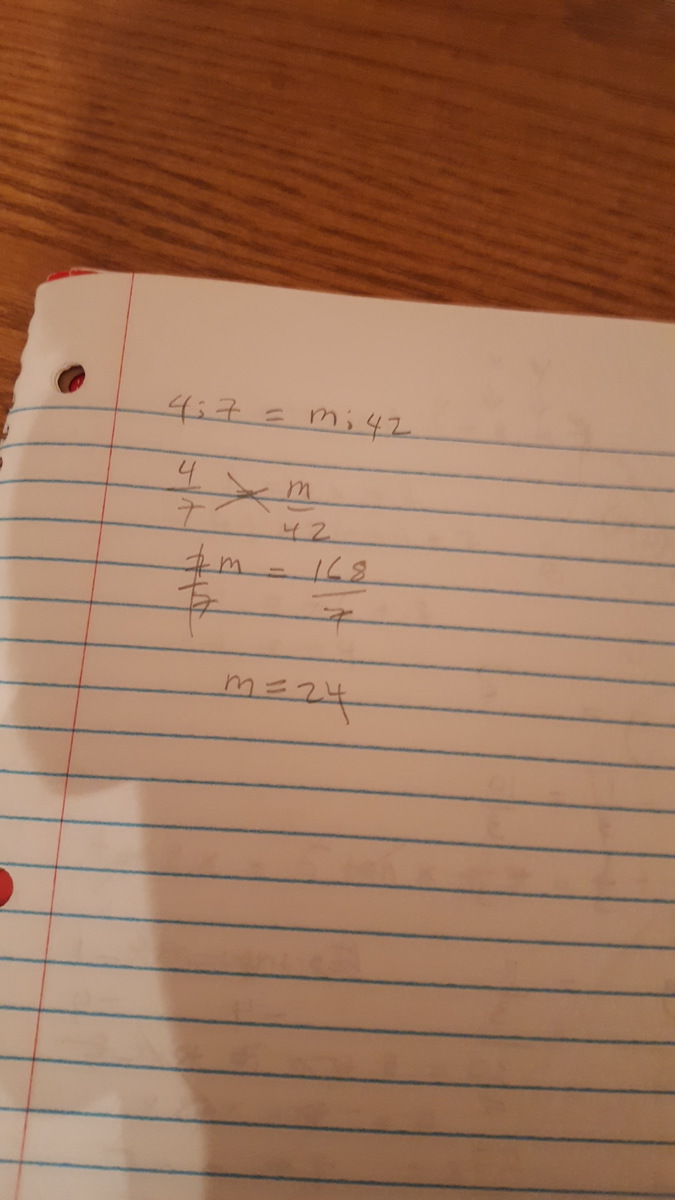 4:7 = m:42
4/7 = m/42
7m/7 = 168/7
m = 24